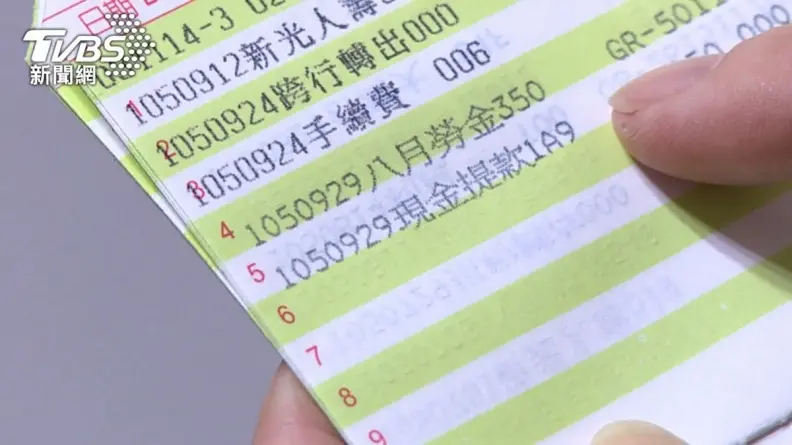 TVBS
新聞網
日期
114-3
1 1050912新光人壽
2 1050924跨行轉出000
3 1050924手續費 006 GR-501
4 1050929八月勞金350
5 1050929現金提款1A9
6
7
8
9